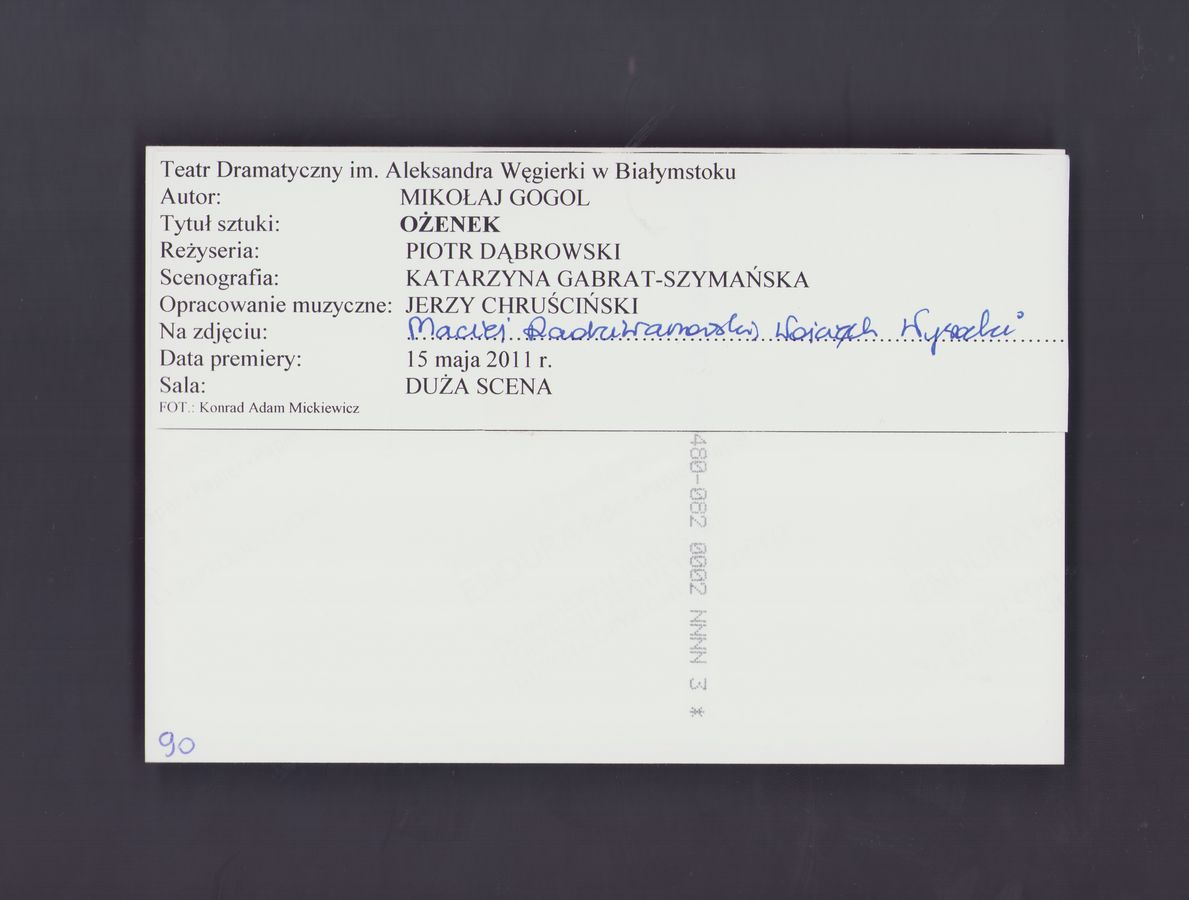 Teatr Dramatyczny im. Aleksandra Węgierki w Białymstoku
Autor: MIKOŁAJ GOGOL
Tytuł sztuki: OŻENEK
Reżyseria: PIOTR DĄBROWSKI
Scenografia: KATARZYNA GABRAT-SZYMAŃSKA
Opracowanie muzyczne: JERZY CHRUŚCIŃSKI
Na zdjęciu: Maciej Radziwanowski, Wojciech Wysocki
Data premiery: 15 maja 2011 r.
Sala: DUŻA SCENA
FOT.: Konrad Adam Mickiewicz
480-082 0002 NNNN 3 *
90